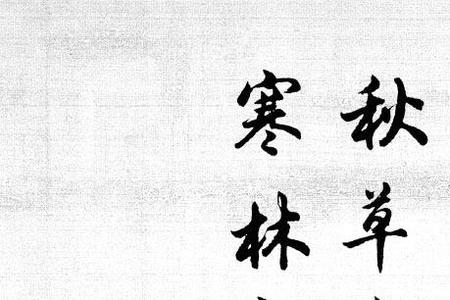 秋草
寒林